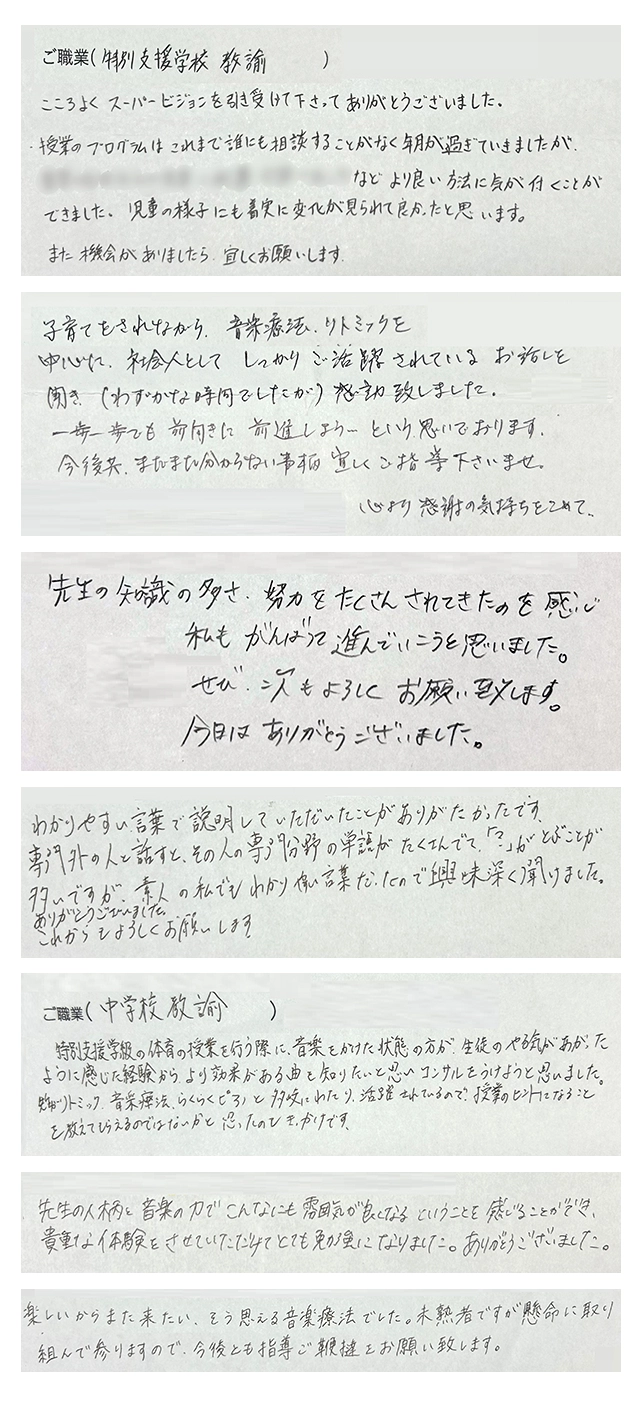 ご職業(特別支援学校 教諭 )
こころよく スーパービジョンを引き受けて下さってありがとうございました。
授業のプログラムはこれまで誰にも相談することがなく年月が過ぎていきましたが、
など より良い方法に気が付くことが
できました。児童の様子にも着実に変化が見られて良かったと思います。
また機会がありましたら、宜しくお願いします。
子育てをされながら、音楽療法、リトミックを
中心に、社会人として しっかり ご活躍されている お話しを
聞き、(わずかな時間でしたが) 感動致しました。
一歩一歩でも 前向きに 前進しよう… という 思いでおります。
今後共、まだまだ分からない事柄 宜しくご指導下さいませ。
心より 感謝の気持ちをこめて…
先生の知識の多さ、努力をたくさんされてきたのを感じ
私も がんばって 進んでいこうと思いました。
ぜひ、次もよろしく お願い致します。
今日は ありがとうございました。
わかりやすい言葉で説明していただいたことがありがたかったです。
専門外の人と話すと、その人の専門分野の単語がたくさんでて、「?」がとぶことが
多いですが、素人の私でもわかり易い言葉だったので興味深く聞けました。
ありがとうございました。
これからもよろしくお願いします
ご職業(中学校 教諭 )
特別支援学級の体育の授業を行う際に、音楽をかけた状態の方が、生徒のやる気があがった
ように感じた経験から、より効果がある曲を知りたいと思いコンサルをうけようと思いました。
リトミック、音楽療法、らくらくピアノと多岐にわたり、活躍されているので、授業のヒントになること
を教えてもらえるのではないかと思ったのもきっかけです。
先生の人柄と音楽の力でこんなにも雰囲気が良くなるということを感じることができ、
貴重な体験をさせていただけてとても勉強になりました。ありがとうございました。
楽しいからまた来たい、そう思える音楽療法でした。未熟者ですが懸命に取り
組んで参りますので、今後とも指導ご鞭撻をお願い致します。